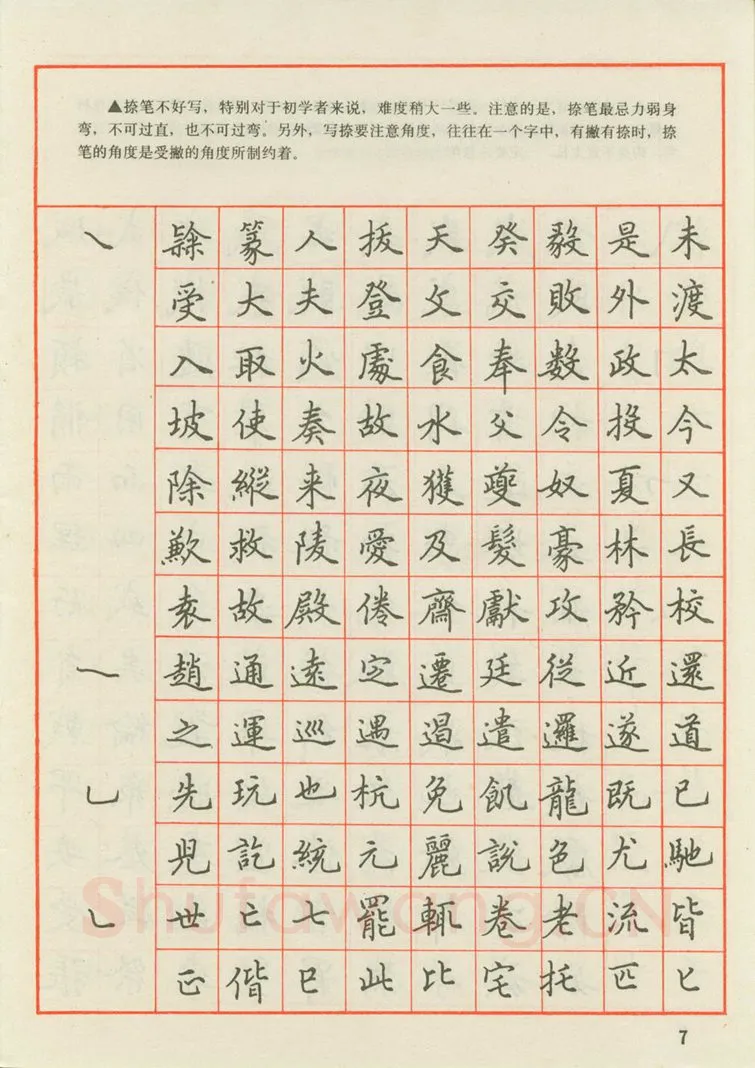 ▲捺笔不好写，特别对于初学者来说，难度稍大一些。注意的是，捺笔最忌力弱身
弯，不可过直，也不可过弯。另外，写捺要注意角度，往往在一个字中，有撇有捺时，捺
笔的角度是受撇的角度所制约着。
㇏ 篆 人 拔 天 癸 毅 是 未
受 大 夫 登 文 交 敗 外 渡
入 取 火 處 食 奉 数 政 太
坡 使 奏 故 水 父 令 投 今
除 縱 来 夜 獲 夔 奴 夏 又
歉 救 陵 愛 及 髮 豪 林 長
袁 故 殿 倦 齋 獻 攻 矜 校
趙 通 遠 定 遷 廷 従 近 還
之 運 巡 遇 遏 遣 邏 遂 道
乚 先 玩 也 杭 免 飢 龍 既 已
兕 訖 統 元 麗 說 色 尤 馳
乚 世 亡 七 罷 輒 卷 老 流 皆
偕 巳 此 比 宅 托 匹 匕
Shufawang.CN
7